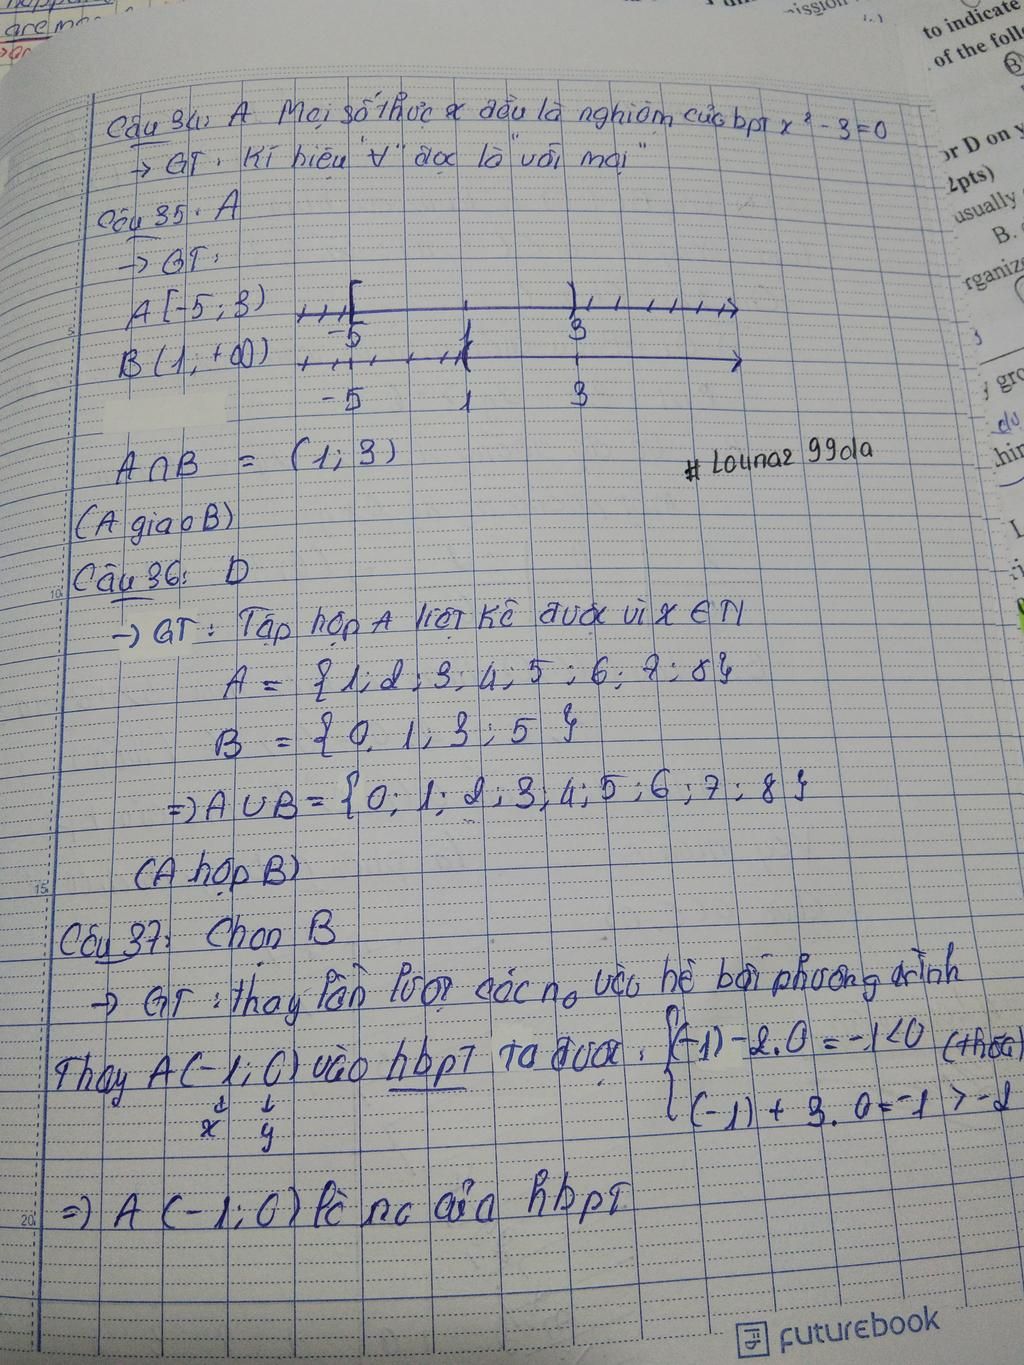 are
to indicate
of the foll
Câu 34: A Mọi số thực x đều là nghiệm của bpt x² - 3 = 0
→ GT: Kí hiệu "∀" đọc là "với mọi"
or D on y
2pts)
usually
B.
rganize
Câu 35: A
→ GT:
A [-5; 3)
-5 1 3
B (1; +∞)
-5 1 3
A ∩ B = (1; 3)
# Lounaz 99da
(A giao B)
Câu 36: D
→ GT: Tập hợp A liệt kê được vì x ∈ N
A = {1; 2; 3; 4; 5; 6; 7; 8}
B = {0, 1; 3; 5}
=> A ∪ B = {0; 1; 2; 3; 4; 5; 6; 7; 8}
(A hợp B)
Câu 37: Chọn B
→ GT: thay lần lượt các no vào hệ bất phương trình
Thay A(-1; 0) vào hbpT ta được: {(-1) - 2.0 = -1 < 0 (thỏa)
(-1) + 3.0 = -1 > -2
x y
=> A (-1; 0) là no của hbpT
5
10
15
20
futurebook